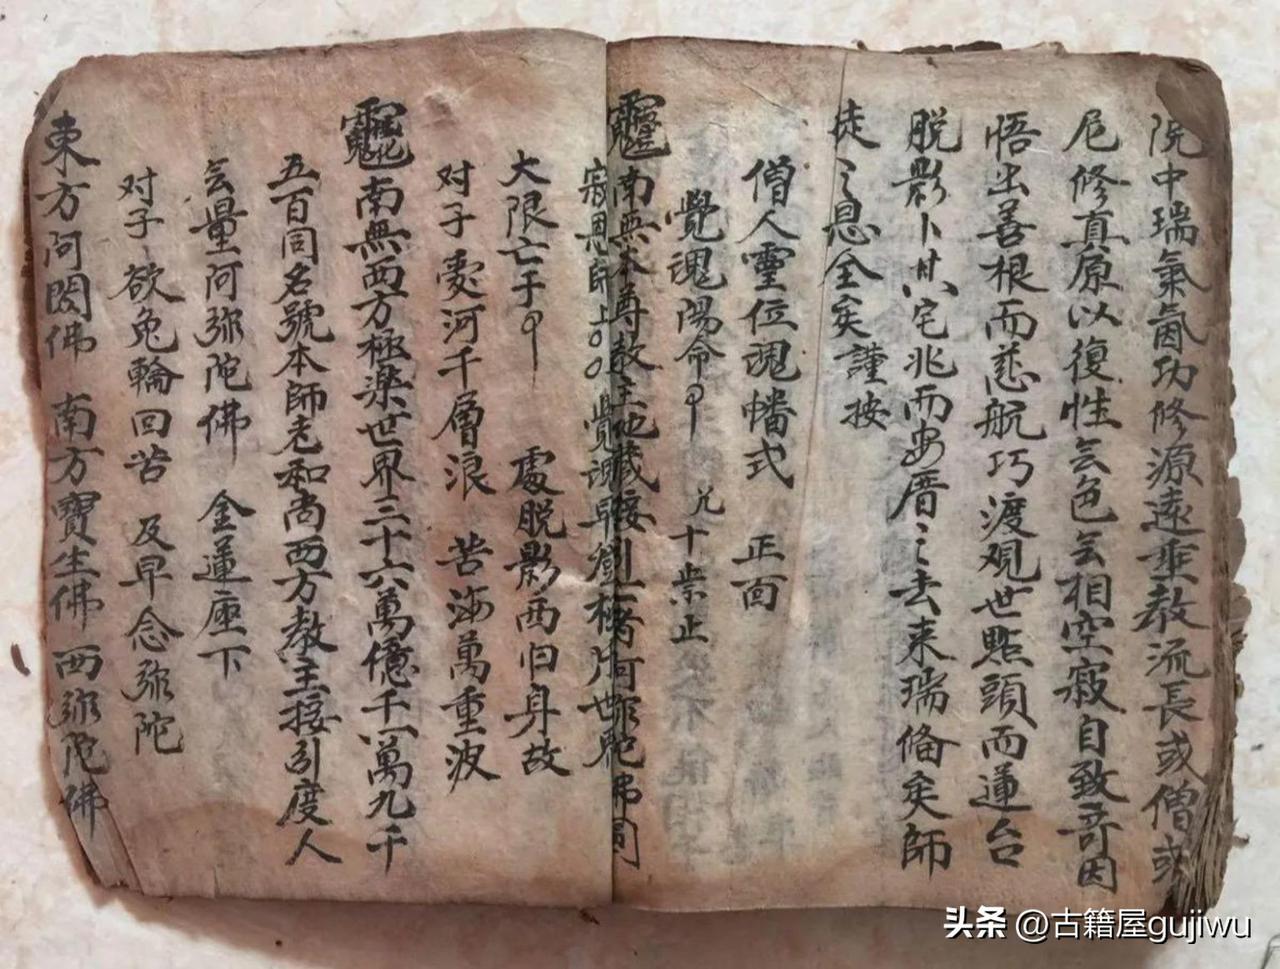 院中瑞氣氤功修源遠乘教流長或僧或
尼修真原以復性会色会相空寂自致奇因
悟出善根而慈航巧渡观世點頭而蓮台
脱影卜其宅兆而安厝〻去来瑞俻矣師
徒〻息全矣謹按
僧人靈位魂幡式 正面
覺魂陽命 十業止
南無本尊教主地藏接引 阿弥陀佛同
寂恩師上〇〇覺
大限亡于 處脱影西归身故
对子 愛河千層浪 苦海萬重波
南無西方極楽世界三十六萬億千一萬九千
五百同名號本師老和尚西方教主接引度人
会量阿弥陀佛 金蓮座下
对子 欲免輪回苦 及早念弥陀
東方阿閦佛 南方寶生佛 西弥陀佛
头条 @古籍屋gujiwu